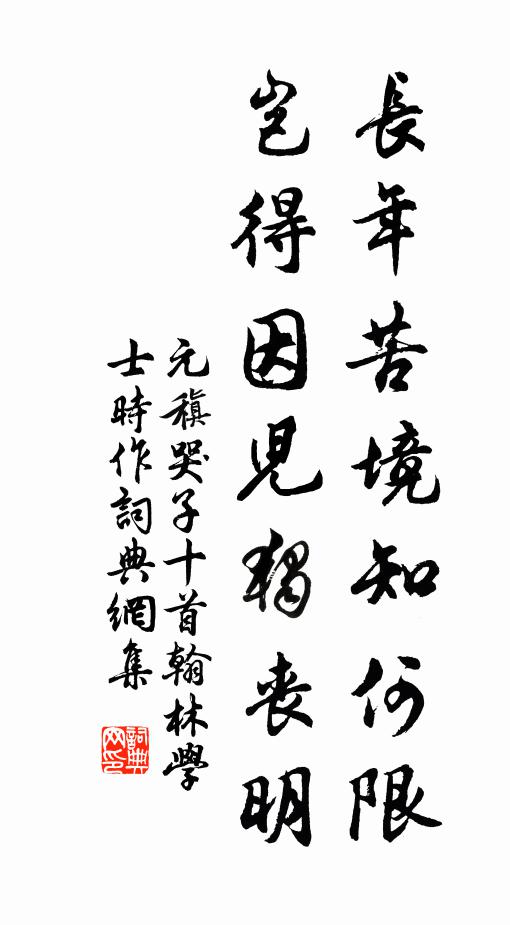 長年苦境知何限
豈得因兒獨喪明
元稹哭子十首翰林學
士時作詞典網集
詞典
网印